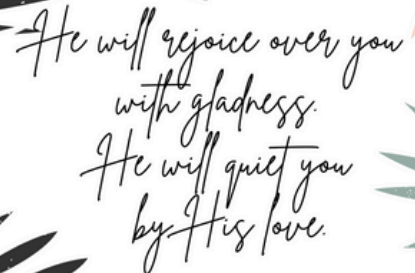 He will rejoice over you
with gladness.
He will quiet you
by His love.